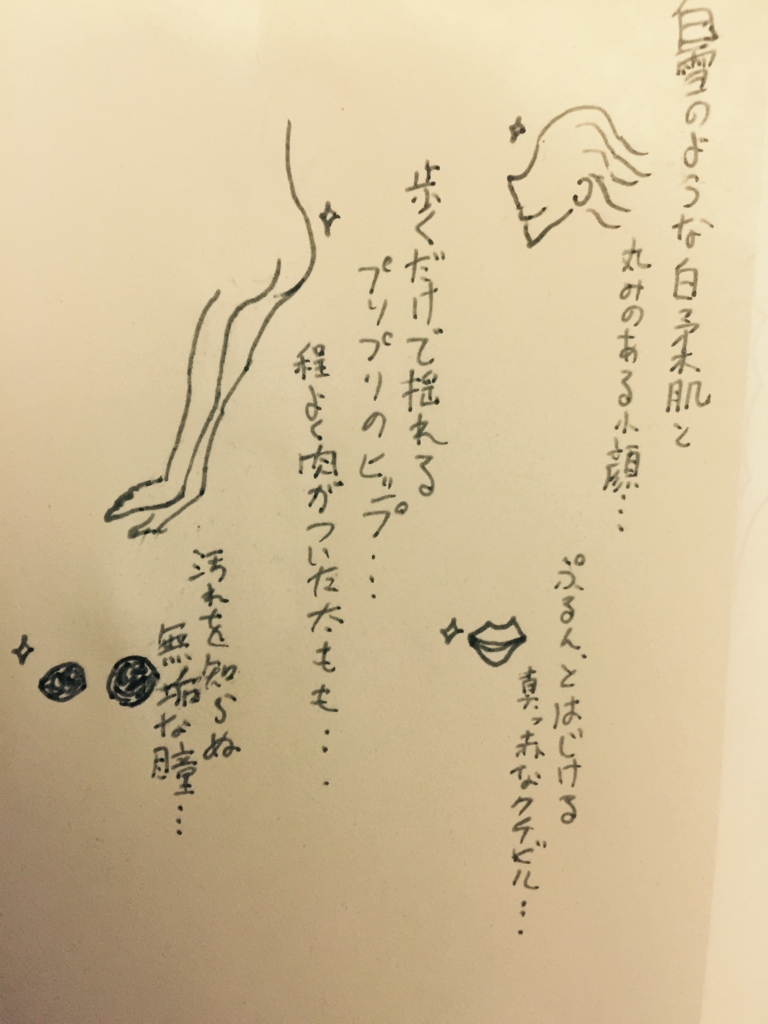 白雪のような白柔肌と
丸みのある小顔…
ぷるん、とはじける
真っ赤なクチビル…
歩くだけで揺れる
プリプリのヒップ…
程よく肉がついた太もも…
汚れを知らぬ
無垢な瞳…